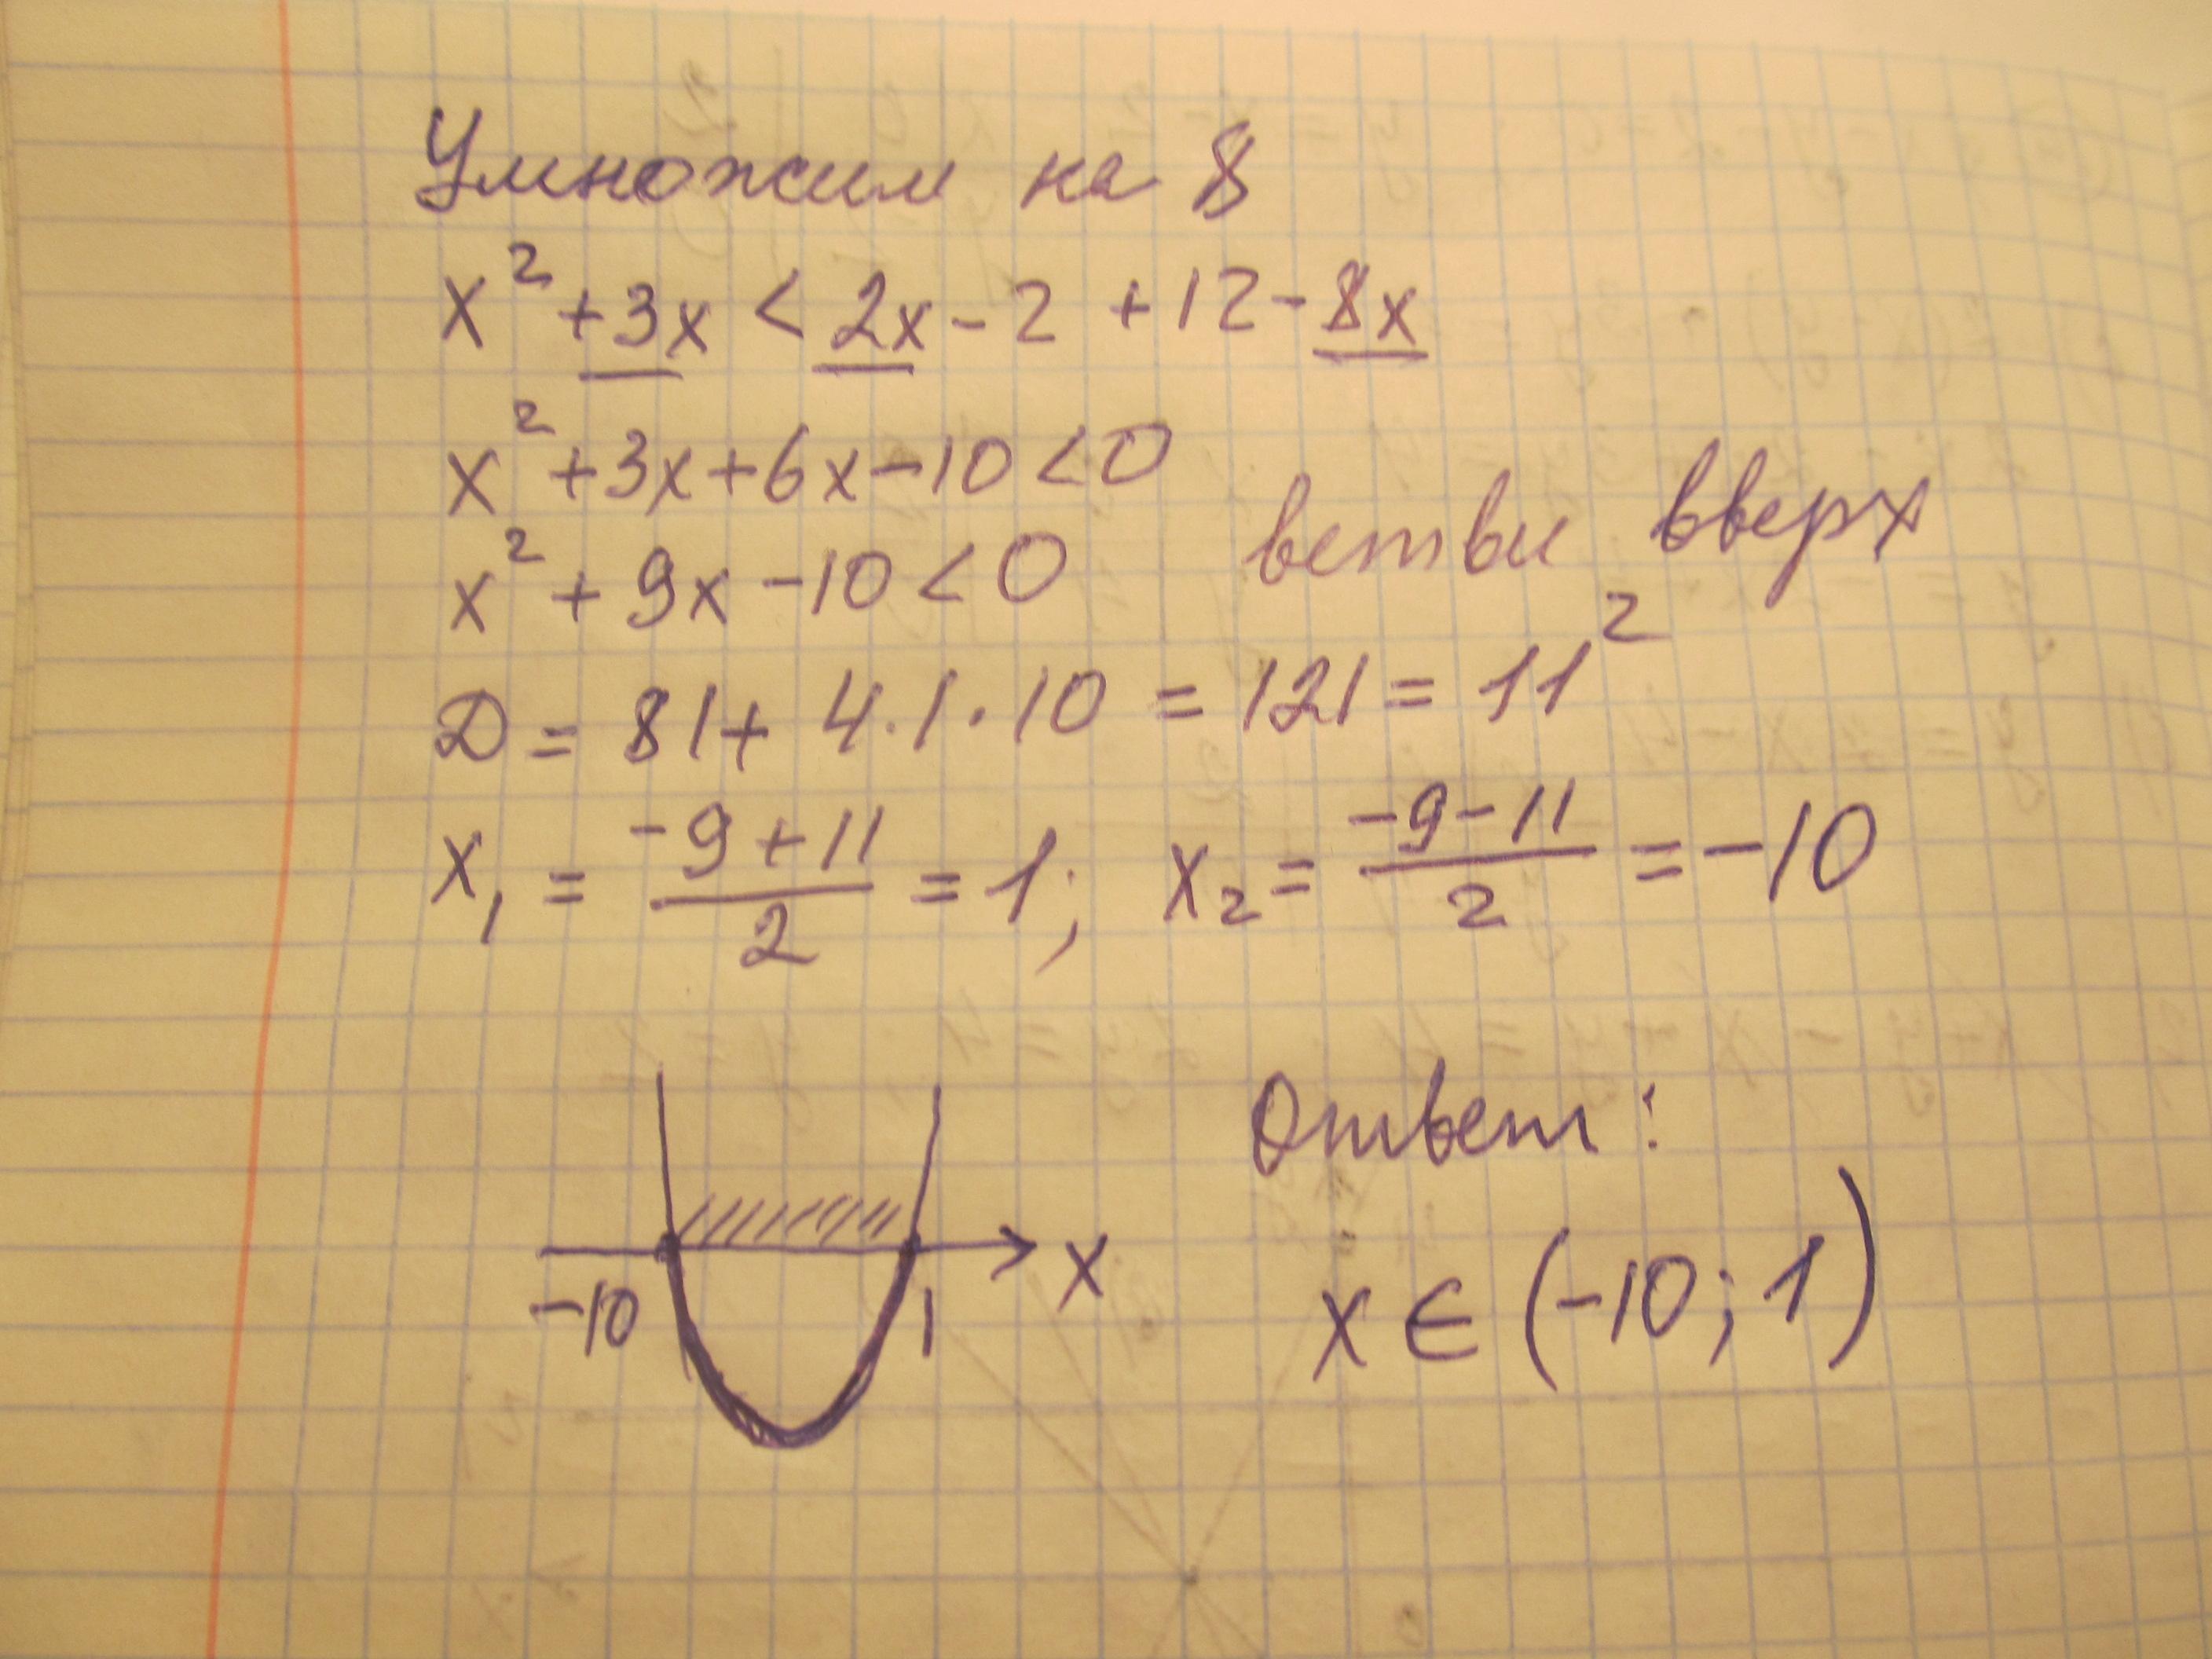 Умножим на 8
x² + 3x < 2x - 2 + 12 - 8x
x² + 3x + 6x - 10 < 0
x² + 9x - 10 < 0 ветви вверх
D = 81 + 4 · 1 · 10 = 121 = 11²
x₁ = (-9 + 11)/2 = 1; x₂ = (-9 - 11)/2 = -10
Ответ:
-10 1 x
x ∈ (-10; 1)